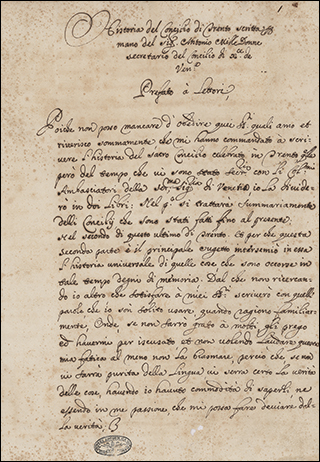 Historia del Concilio di Trento scritta p
mano del Sr. Antonio Milledonne
secretario del Concilio di X.ci de
Ven.a
Prefatio à Lettori,
Poiche non posso mancare d'obedire que S.ri quali amo et
riverisco sommamente che mi hanno commandato à scri-
vere l'historia del Sacro Concilio celebrato in Trento
però del tempo che vi sono stato secr.o con li
Ambasciatori della Ser.ma Sig.ria di Venetia io la divide-
rò in doi Libri; Nel p.o si trattarà summariamente
delli Concilij che sono stati fatti fino al presente.
Nel secondo di questo ultimo di Trento. Et per che questa
seconda parte è il principale sugetto interserirò in essa
l'historia universale di quelle cose che sono occorse in
tale tempo degni di memoria. Dal che non ricercan-
do io altro che sodisfare à miei S.ri scriverò con quelle
parole che io son solito usare, quando ragiono familiar-
mente, Onde, se non sarò grato à molti gli prego
ad havermi per iscusato et non volendo laudare questa
mia fatica al meno non la biasmare, percio che se non
vi sarrà purità della lingua vi serà certo la verità
delle cose, havendo io havuto commodità di saperle, ne
essendo in me passione che me possa fare deviare del-
la verità.